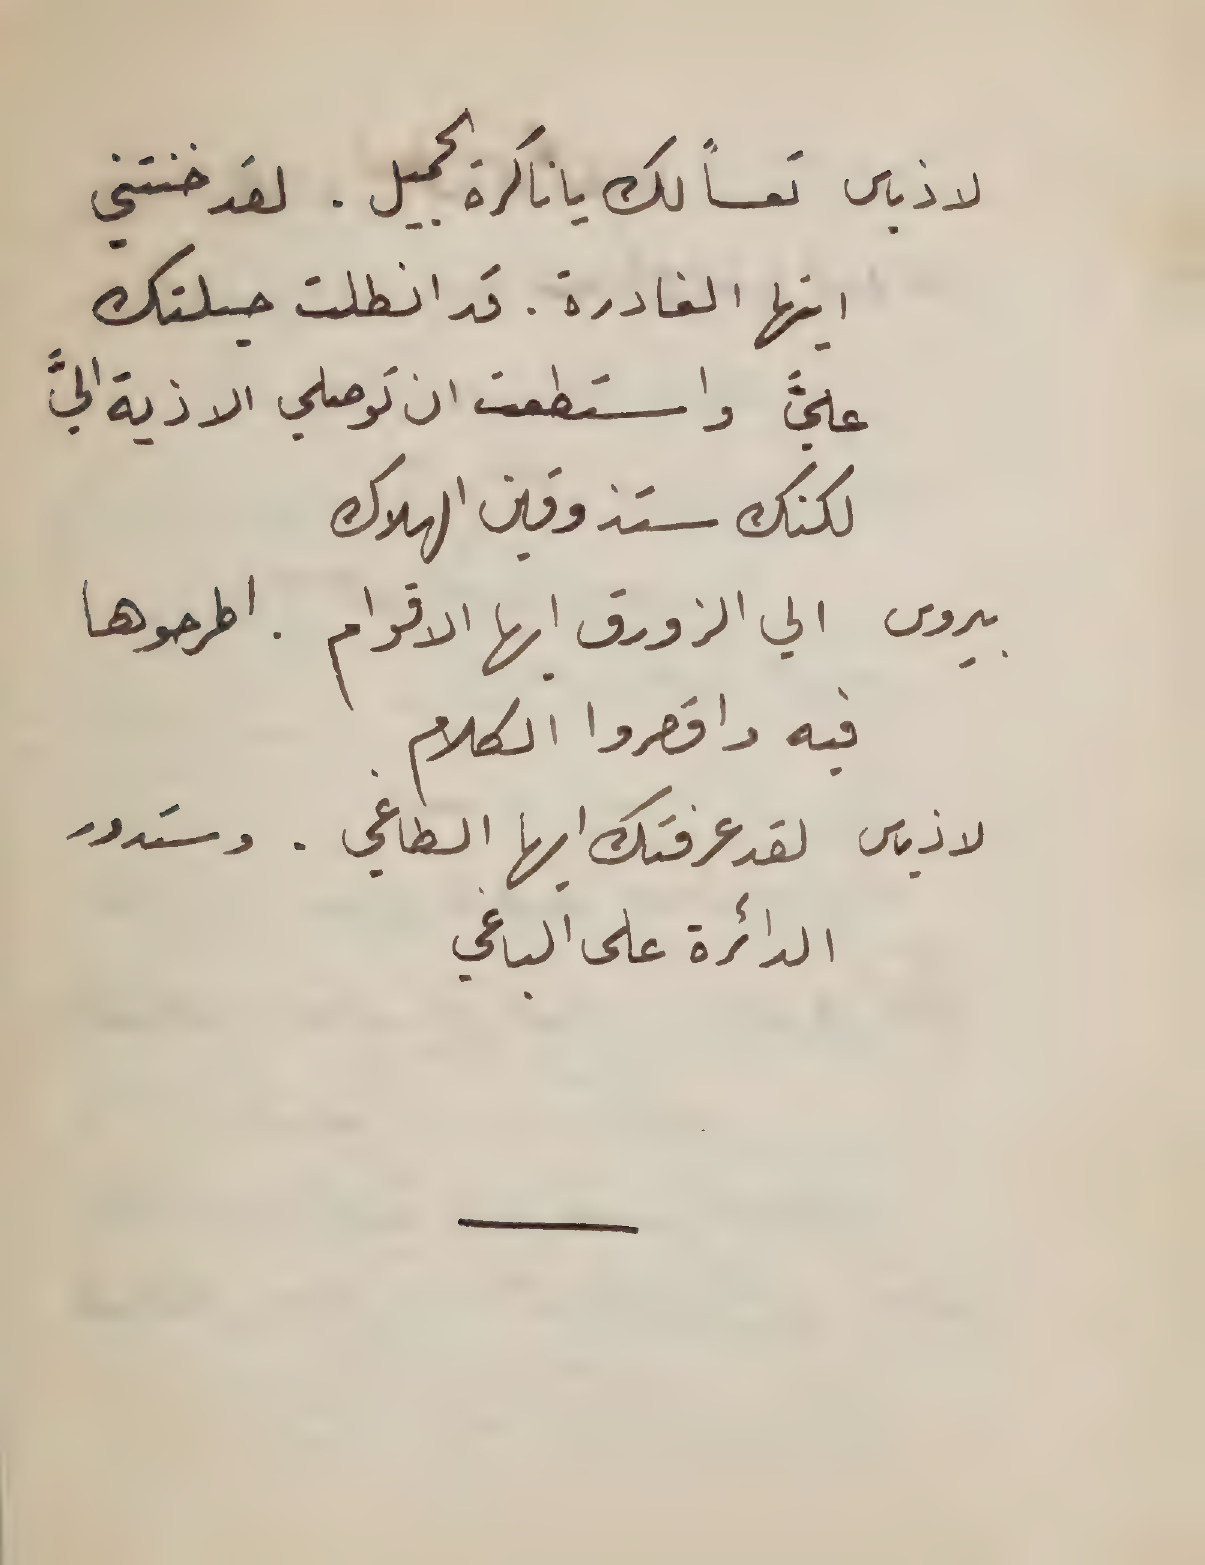 لاذياس تعساً لك يا ناكرة الجميل . لقد خنتني
ايتها الغادرة . قد انطلت حيلتك
عليَّ واستطعت ان توصلي الاذية اليَّ
لكنك ستذوقين الهلاك
بيروس الي الزورق ايها الاقوام . اطرحوها
فيه واقصروا الكلام
لاذياس لقد عرفتك ايها الطاغي . وستدور
الدائرة على الباغي